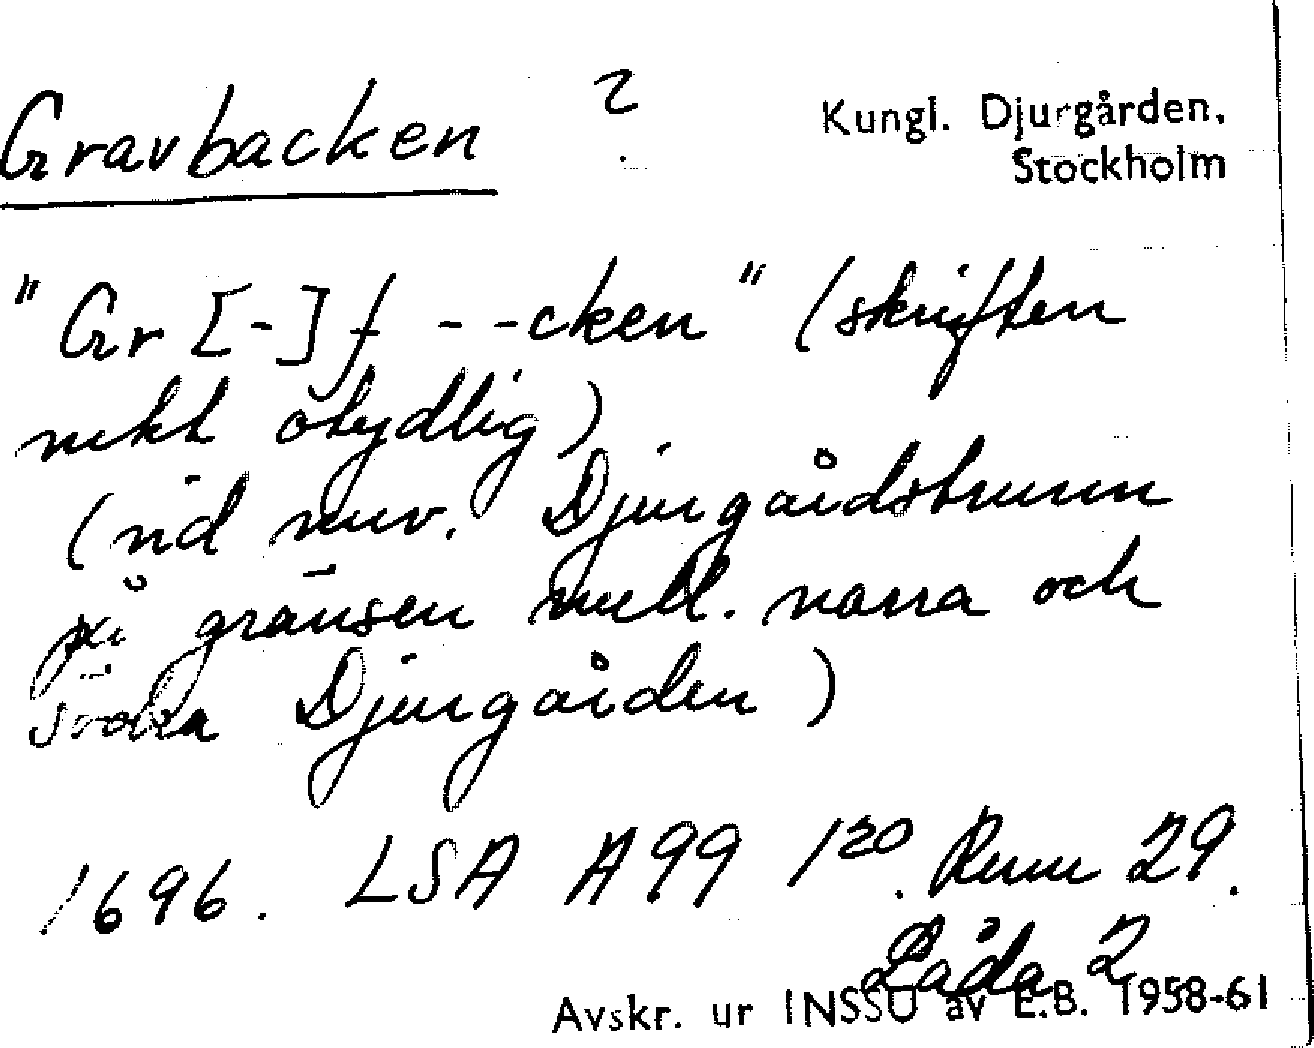 Gravbacken ?
Kungl. Djurgården,
Stockholm
"Gr [-] f - -cken" (skriften
mkt otydlig)
(vid nuv. Djurgårdsbrunn
på gränsen mell. norra och
södra Djurgården)
1696. LSA A99 1²⁰. Rum 29.
Låda 2
Avskr. ur INSSU av E.B. 1958-61